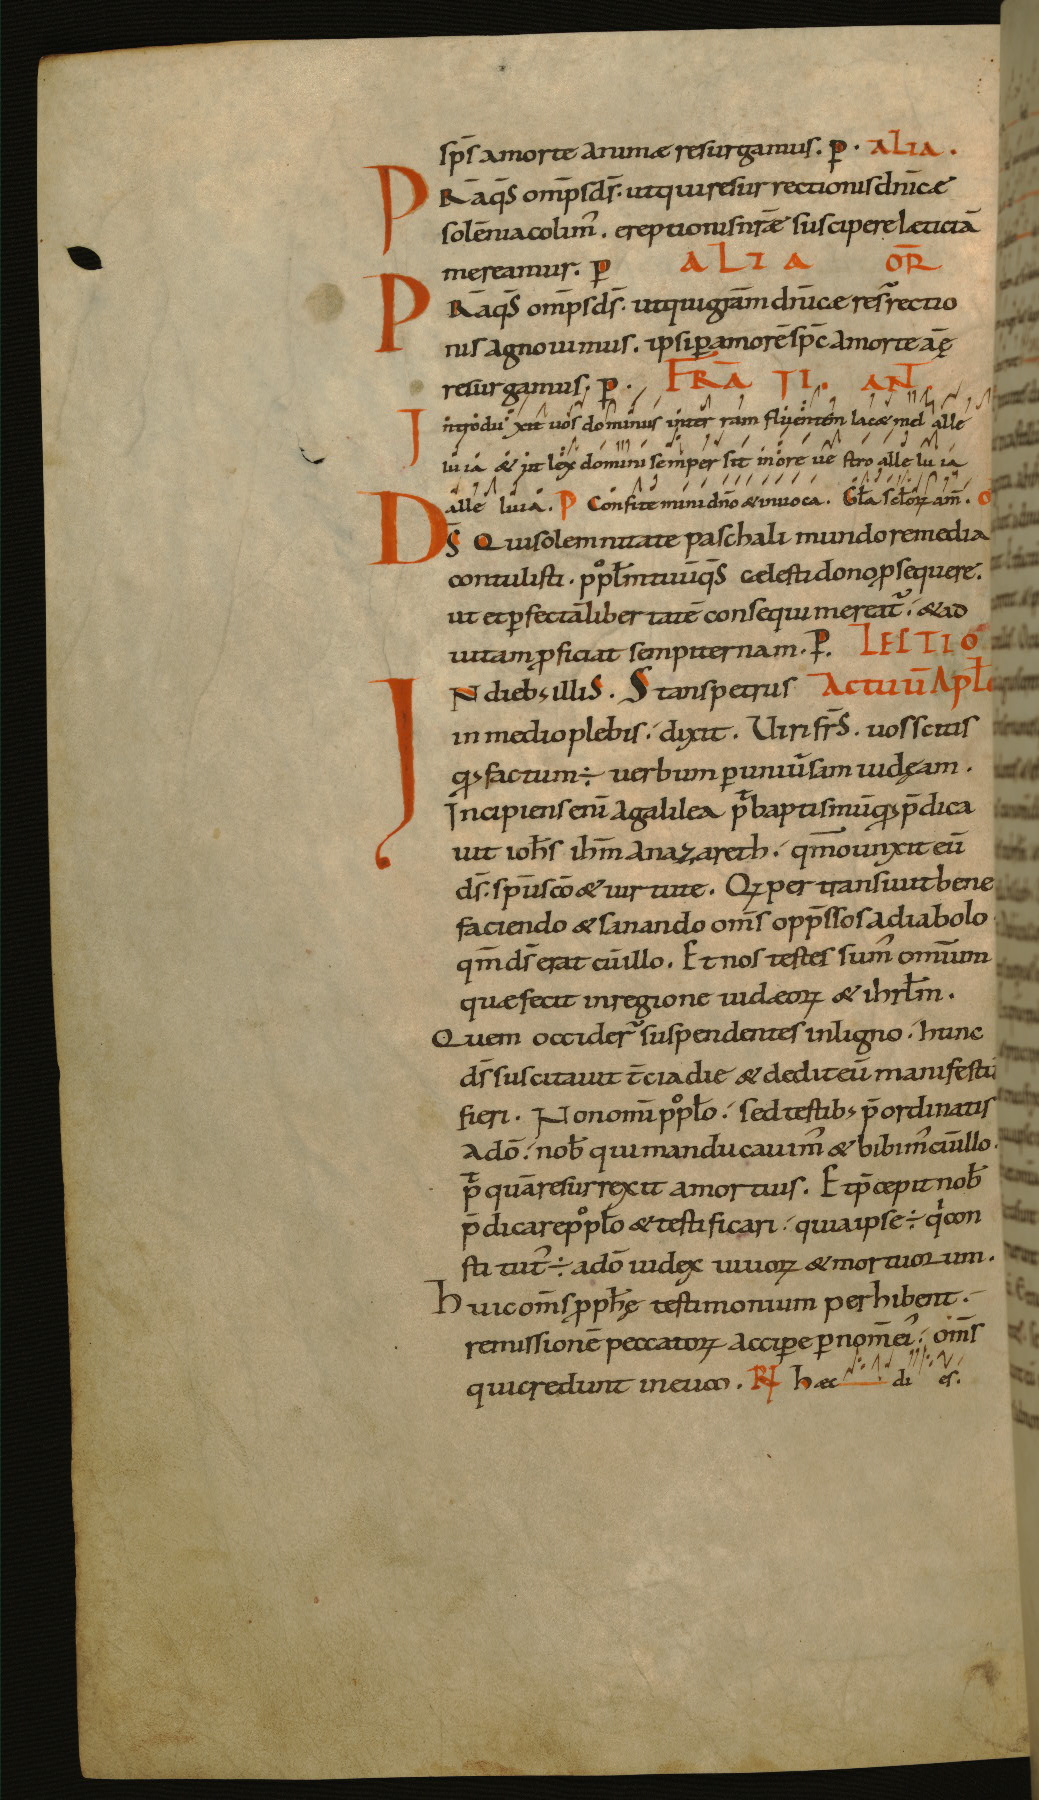 sp̄s a morte animæ resurgamus. p̄. ALIA.
PR̄A q̄s om̄ps ds̄. ut qui resurrectionis dn̄icæ
solēnia colim̄. ereptionis nr̄æ suscipere læticiā
mereamur. p̄ ALIA OR̄
PR̄A q̄s om̄ps ds̄. ut qui gr̄am dn̄icæ resr̄rectio
nis agnouimus. ipsi p̄ amorē sp̄c a morte aīę
resurgamus. p̄. FR̄A II. AN̄
Introduxit uos dominus in terram fluentem lac & mel alle
luia & ut lex domini semper sit in ore uestro alleluia
alleluia. P Confitemini dn̄o & inuoca. Gl̄a scl̄oꝝ am̄. O
DS̄ Qui solemnitate paschali mundo remedia
contulisti. pop̄lm tuū q̄s cælesti dono ꝓsequere.
ut et p̄fectā libertatē consequi mereat᷒. & ad
uitam ꝓficiat sempiternam. p̄. LECTIO
IN dieb; illis. Stans petrus Actuū Apl̄o
in medio plebis. dixit. Uiri fr̄s. uos scitis
qď factum ÷ uerbum p uniūsam iudęam.
Incipiens enī a galilea p̄ baptismū qď p̄dica
uit ioh̄s ih̄m a nazareth. qm̄o unxit eū
ds̄. sp̄u sc̄o & uirtute. Qꝫ pertransiuit bene
faciendo & sanando om̄s opp̄ssos a diabolo
qm̄ ds̄ erat cū illo. Et nos testes sum̄ om̄ium
quæ fecit in regione iudæoꝝ & ihrl̄m.
Quem occider̄ suspendentes in ligno. hunc
ds̄ suscitauit t̄cia die & dedit eū manifestū
fieri. Non om̄i pop̄lo. sed testib; p̄ordinatis
a dō. nob̄ qui manducauim̄ & bibim̄ cū illo.
p̄ quā resurrexit a mortuis. Et p̄cepit nob̄
p̄dicare pop̄lo & testificari. quia ipse ÷ q̄ con
stitut̄ ÷ a dō iudex uiuoꝝ & mortuorum.
Huic om̄s ꝓph̄ę testimonium perhibent.
remissionē peccatoꝝ accipe p nom̄ ei᷒. om̄s
qui credunt in eum. R̸ Hæc di es.